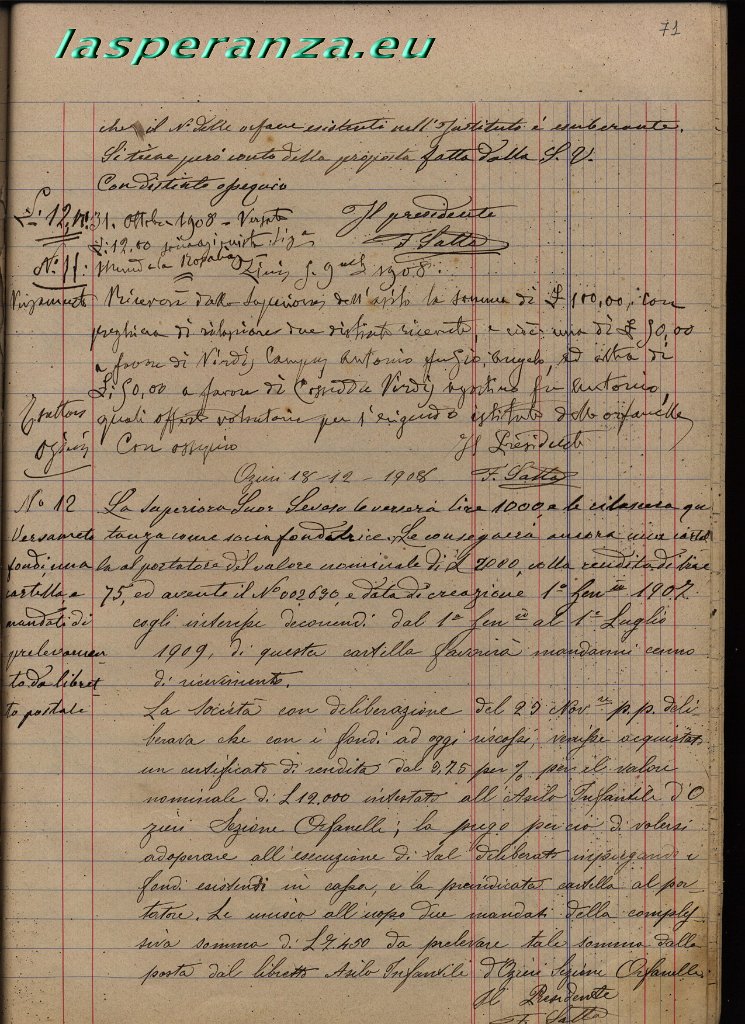 lasperanza.eu
71
che il N. delle orfane esistenti nell'Istituto è esuberante.
Si tiene però conto della proposta fatta dalla S. V.
Con distinto ossequio
£. 12,00 31. Ottobre 1908 - Versate Il presidente
£. 12.00 F. Satta
N. 11. 1908.
Versamento Riceverà dalla Superiora dell'asilo la somma di £ 100,00, con
preghiera di rilasciare due distinte ricevute, e cioè una di £ 50,00
a favore di Virdis Campus Antonio fu Angelo, ed altra di
£. 50,00 a favore di Virdis Agostino fu Antonio,
quali offerte volontarie per l'erigendo istituto delle orfanelle
Con ossequio Il Presidente
Ozieri 18-12-1908 F. Satta
No 12 La Superiora Suor le verserà lire 1000 e le rilascerà qui
Versamento tanza come socia fondatrice. Le consegnerà ancora una cartel
fondi, una la al portatore del valore nominale di £ 2000, colla rendita di lire
cartella, e 75, ed avente il No 002630, e data di creazione 1° Gen 1907.
mandati di cogli interessi decorrendi dal 1° Gen al 1° Luglio
prelevamen 1909, di questa cartella favorirà mandarmi cenno
to da libret di ricevimento.
to postale La Società con deliberazione del 29 Nov p.p. deli
berava che con i fondi ad oggi riscossi, venisse acquistato
un certificato di rendita dal 3,75 per % per il valore
nominale di £ 12.000 intestato all'Asilo Infantile d'O
zieri Sezione Orfanelle; la prego perciò di volersi
adoperare all'esecuzione di tal deliberato impiegando i
fondi esistendi in cassa, e la preindicata cartella al por
tatore. Le unisco all'uopo due mandati della comples
siva somma di £ 7.450 da prelevare tale somma dalla
posta dal libretto Asilo Infantile d'Ozieri Sezione Orfanelle
Il Presidente
F. Satta